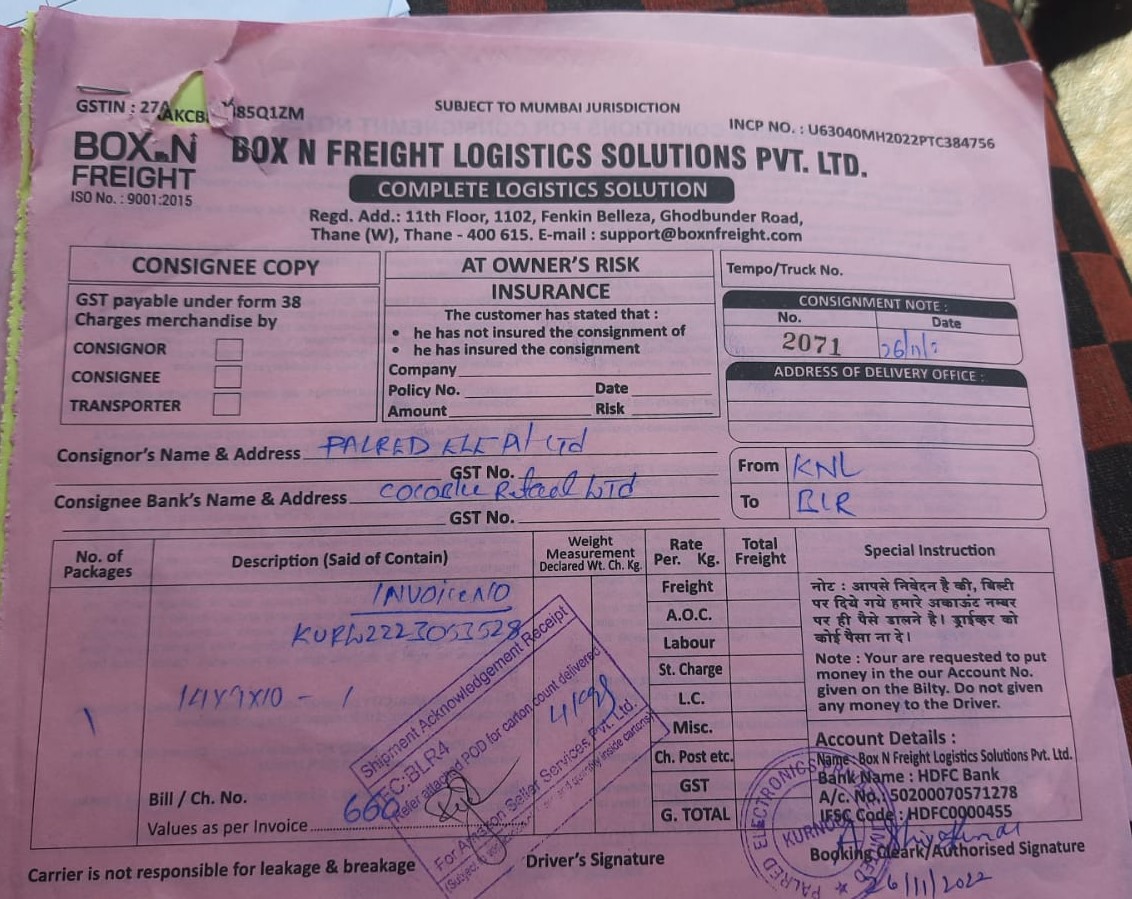 GSTIN : 27AAKCB 85Q1ZM
SUBJECT TO MUMBAI JURISDICTION
INCP NO. : U63040MH2022PTC384756
BOX N FREIGHT
ISO No. : 9001:2015
BOX N FREIGHT LOGISTICS SOLUTIONS PVT. LTD.
COMPLETE LOGISTICS SOLUTION
Regd. Add.: 11th Floor, 1102, Fenkin Belleza, Ghodbunder Road,
Thane (W), Thane - 400 615. E-mail : support@boxnfreight.com
CONSIGNEE COPY
GST payable under form 38
Charges merchandise by
CONSIGNOR
CONSIGNEE
TRANSPORTER
AT OWNER'S RISK
INSURANCE
The customer has stated that :
• he has not insured the consignment of
• he has insured the consignment
Company
Policy No. Date
Amount Risk
Tempo/Truck No.
CONSIGNMENT NOTE :
No. Date
2071 26/11/2
ADDRESS OF DELIVERY OFFICE :
Consignor's Name & Address PALRED Ltd
GST No.
Consignee Bank's Name & Address Retail Ltd
GST No.
From KNL
To BLR
No. of Packages
Description (Said of Contain)
Weight Measurement Declared Wt. Ch. Kg.
Rate Per. Kg.
Total Freight
Special Instruction
INVOICE NO
KURW2223053528
14X9X10 - 1
1
4 kgs
Freight
A.O.C.
Labour
St. Charge
L.C.
Misc.
Ch. Post etc.
GST
G. TOTAL
नोट : आपसे निवेदन है की, बिल्टी
पर दिये गये हमारे अकाऊंट नम्बर
पर ही पैसे डालने है। ड्राईव्हर को
कोई पैसा ना दे।
Note : Your are requested to put
money in the our Account No.
given on the Bilty. Do not given
any money to the Driver.
Account Details :
Name: Box N Freight Logistics Solutions Pvt. Ltd.
Bank Name : HDFC Bank
A/c. No.: 50200070571278
IFSC Code : HDFC0000455
Shipment Acknowledgement Receipt
FC:BLR4
Refer attached POD for carton count delivered
For Amazon Seller Services Pvt. Ltd.
(Subject to and quantity inside cartons)
Bill / Ch. No.
Values as per Invoice 660
PALRED ELECTRONICS
KURNOOL
Carrier is not responsible for leakage & breakage
Driver's Signature
Booking Cleark/Authorised Signature
26/11/2022